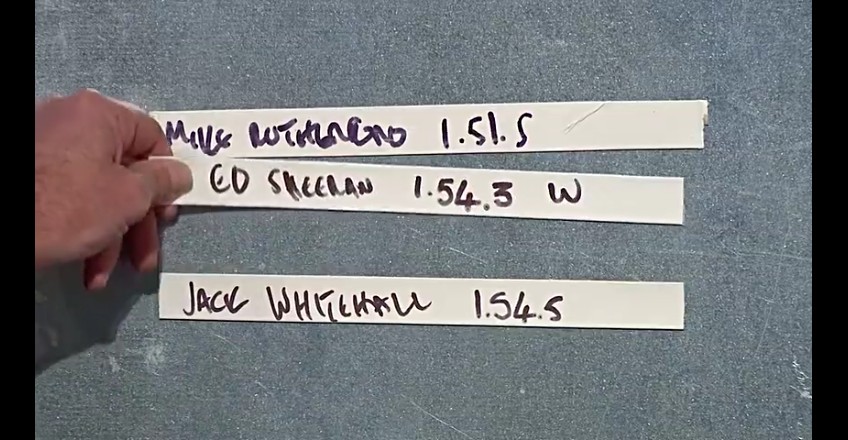 MIKE RUTHERFORD 1.51.5
ED SHEERAN 1.54.3 W
JACK WHITEHALL 1.54.5